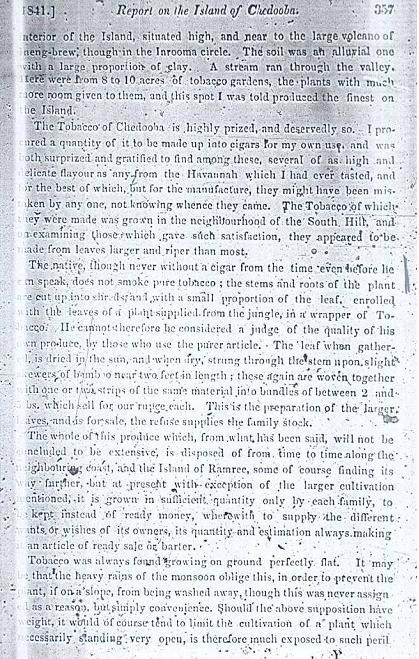 1841.] Report on the Island of Chedooba. 357
interior of the Island, situated high, and near to the large volcano of
heng-brew, though in the Inrooma circle. The soil was an alluvial one
with a large proportion of clay. A stream ran through the valley.
Here were from 8 to 10 acres of tobacco gardens, the plants with much
more room given to them, and this spot I was told produced the finest on
the Island.
The Tobacco of Chedooba is highly prized, and deservedly so. I pro-
cured a quantity of it to be made up into cigars for my own use, and was
both surprized and gratified to find among these, several of as high and
delicate flavour as any from the Havannah which I had ever tasted, and
or the best of which, but for the manufacture, they might have been mis-
taken by any one, not knowing whence they came. The Tobacco of which
they were made was grown in the neighbourhood of the South Hill, and
on examining those which gave such satisfaction, they appeared to be
made from leaves larger and riper than most.
The native, though never without a cigar from the time even before he
can speak, does not smoke pure tobacco; the stems and roots of the plant
are cut up into shreds and with a small proportion of the leaf, enrolled
with the leaves of a plant supplied from the jungle, in a wrapper of To-
bacco. He cannot therefore be considered a judge of the quality of his
own produce, by those who use the purer article. The leaf when gather-
ed, is dried in the sun, and when dry, strung through the stem upon slight
skewers of bamboo near two feet in length; these again are woven together
with one or two strips of the same material into bundles of between 2 and
lbs. which sell for one rupee each. This is the preparation of the larger
leaves, and is for sale, the refuse supplies the family stock.
The whole of this produce which, from what has been said, will not be
concluded to be extensive, is disposed of from time to time along the
neighbouring coast, and the Island of Ramree, some of course finding its
way further, but at present with exception of the larger cultivation
mentioned, it is grown in sufficient quantity only by each family, to
be kept instead of ready money, wherewith to supply the different
wants or wishes of its owners, its quantity and estimation always making
an article of ready sale or barter.
Tobacco was always found growing on ground perfectly flat. It may
that the heavy rains of the monsoon oblige this, in order to prevent the
plant, if on a slope, from being washed away, though this was never assign
as a reason, but simply convenience. Should the above supposition have
weight, it would of course tend to limit the cultivation of a plant which
necessarily standing very open, is therefore much exposed to such peril